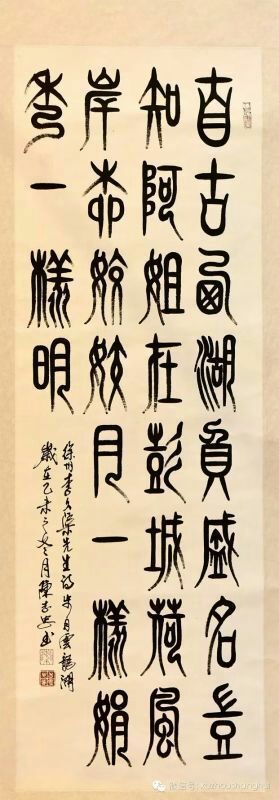 自古西湖負盛名豈
知阿姐在彭城荷風
岸柳月一樣娟
秀一樣明
徐州李先生詩步月雲龍湖
歲在乙未之冬月陳志書
微信号: xuzhoushanghui